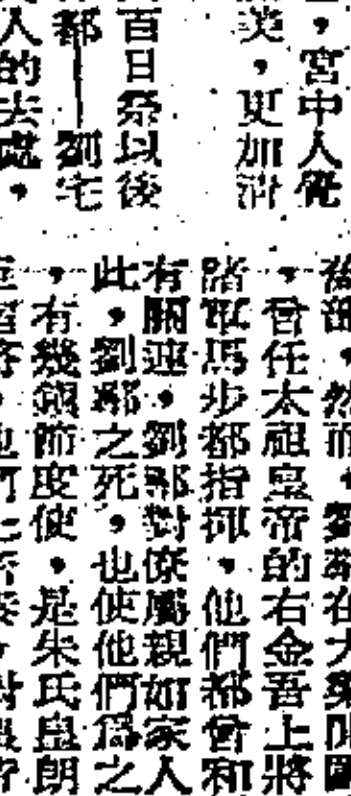 ，宮中人覺
美，更加清
百日祭以後
都——劉宅
人的去處，
舊部，然而，劉鄩在大梁開國
，曾任太祖皇帝的右金吾上將
諸軍馬步都指揮，他們都曾和
有關連，劉鄩對僚屬親如家人
此，劉鄩之死，也使他們爲之
，有幾個節度使，是朱氏皇朝